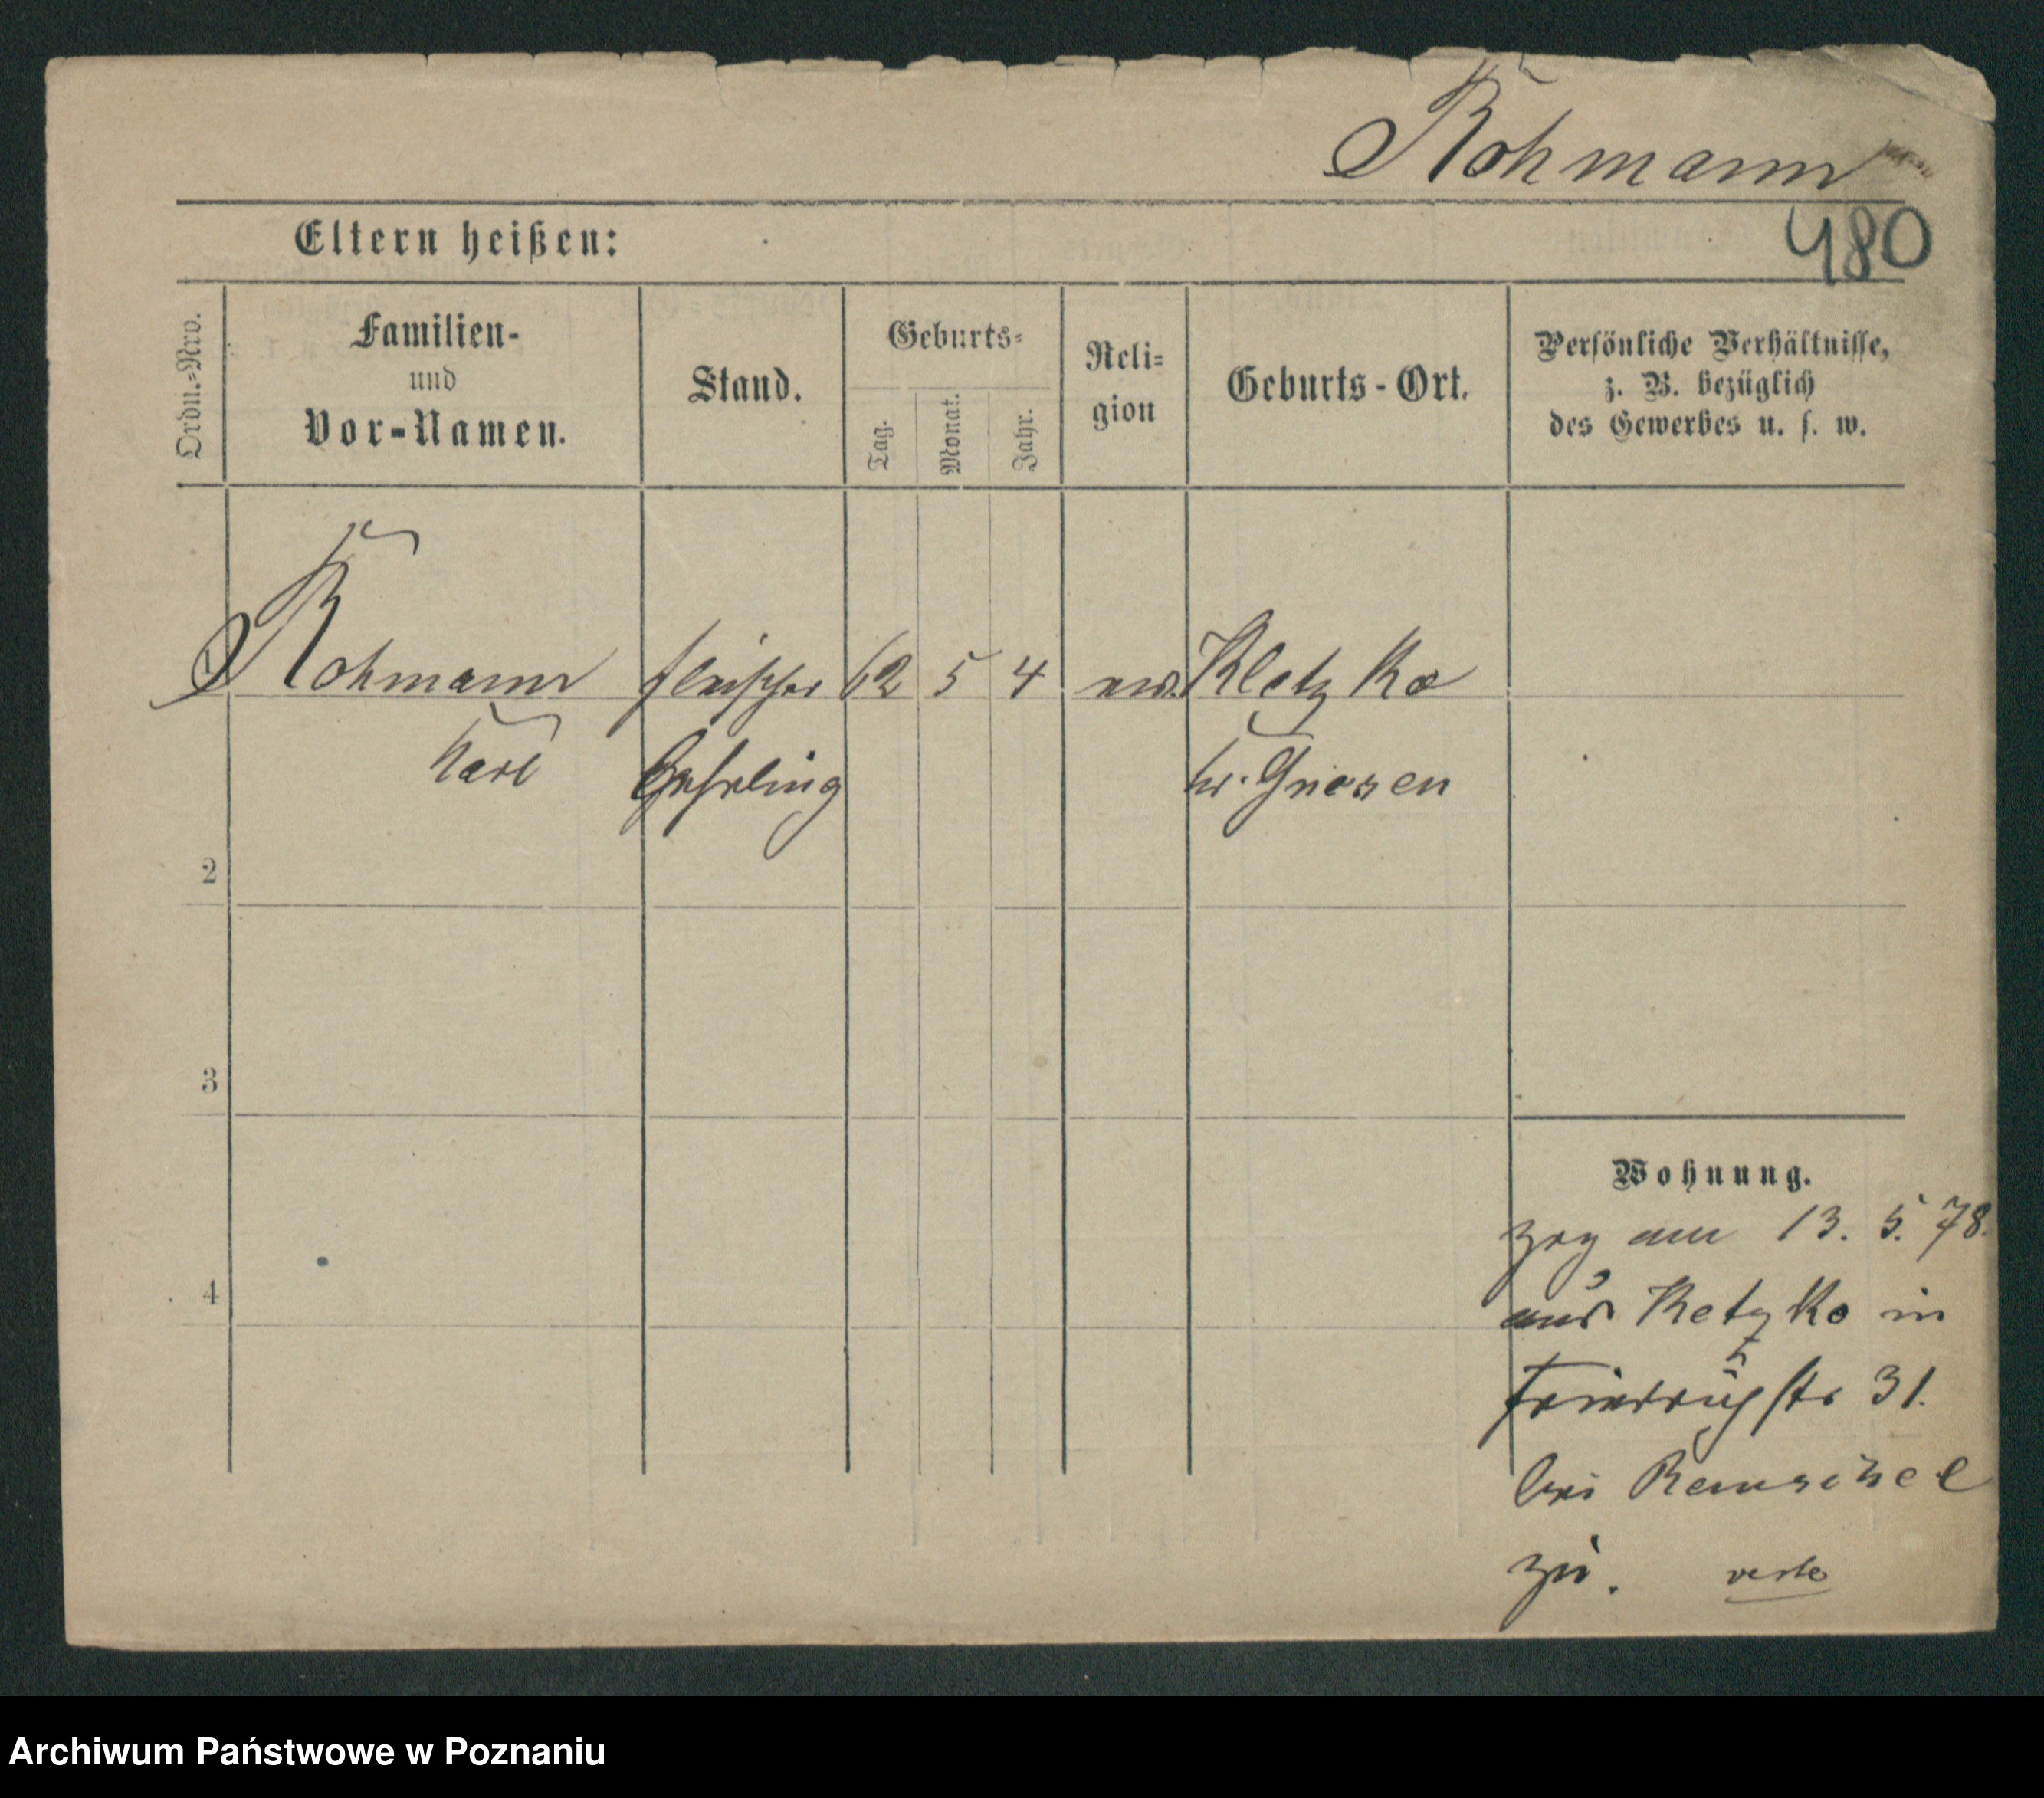 Rohmann
480
Eltern heißen:
Ordn.-Nro.
Familien-
und
Vor-Namen.
Stand.
Geburts-
Tag.
Monat.
Jahr.
Reli-
gion
Geburts-Ort.
Persönliche Verhältnisse,
z. B. bezüglich
des Gewerbes u. s. w.
1 Rohmann Fleischer 62 5 4 Kletzko
Karl kr. Gnesen
2
3
4
Wohnung.
zog am 13. 5. 78.
aus Kletzko in
Friedrichstr 31.
bei
zu. verte
Archiwum Państwowe w Poznaniu